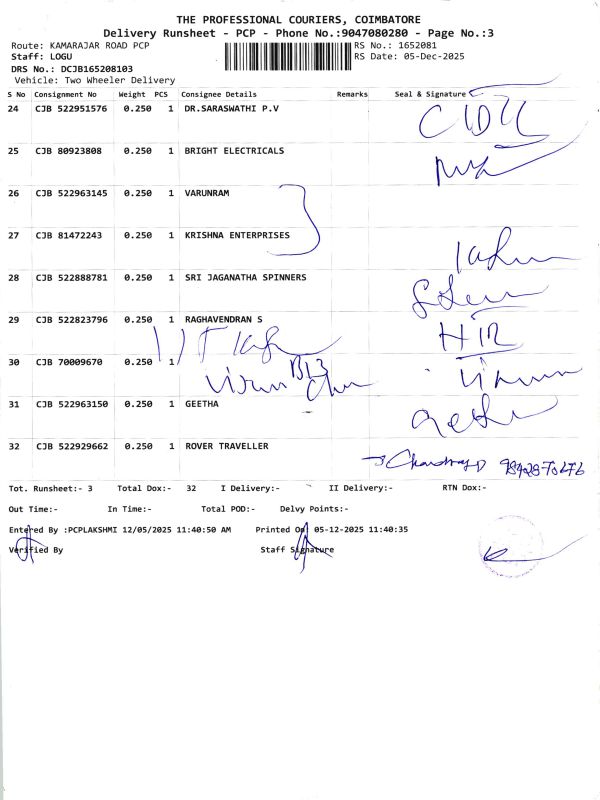 THE PROFESSIONAL COURIERS, COIMBATORE
Delivery Runsheet - PCP - Phone No.:9047080280 - Page No.:3
Route: KAMARAJAR ROAD PCP RS No.: 1652081
Staff: LOGU RS Date: 05-Dec-2025
DRS No.: DCJB165208103
Vehicle: Two Wheeler Delivery
S No Consignment No Weight PCS Consignee Details Remarks Seal & Signature
24 CJB 522951576 0.250 1 DR.SARASWATHI P.V
25 CJB 80923808 0.250 1 BRIGHT ELECTRICALS
26 CJB 522963145 0.250 1 VARUNRAM
27 CJB 81472243 0.250 1 KRISHNA ENTERPRISES
28 CJB 522888781 0.250 1 SRI JAGANATHA SPINNERS
29 CJB 522823796 0.250 1 RAGHAVENDRAN S
30 CJB 70009670 0.250 1
31 CJB 522963150 0.250 1 GEETHA
32 CJB 522929662 0.250 1 ROVER TRAVELLER
Tot. Runsheet:- 3 Total Dox:- 32 I Delivery:- II Delivery:- RTN Dox:-
Out Time:- In Time:- Total POD:- Delvy Points:-
Entered By :PCPLAKSHMI 12/05/2025 11:40:50 AM Printed On 05-12-2025 11:40:35
Verified By Staff Signature